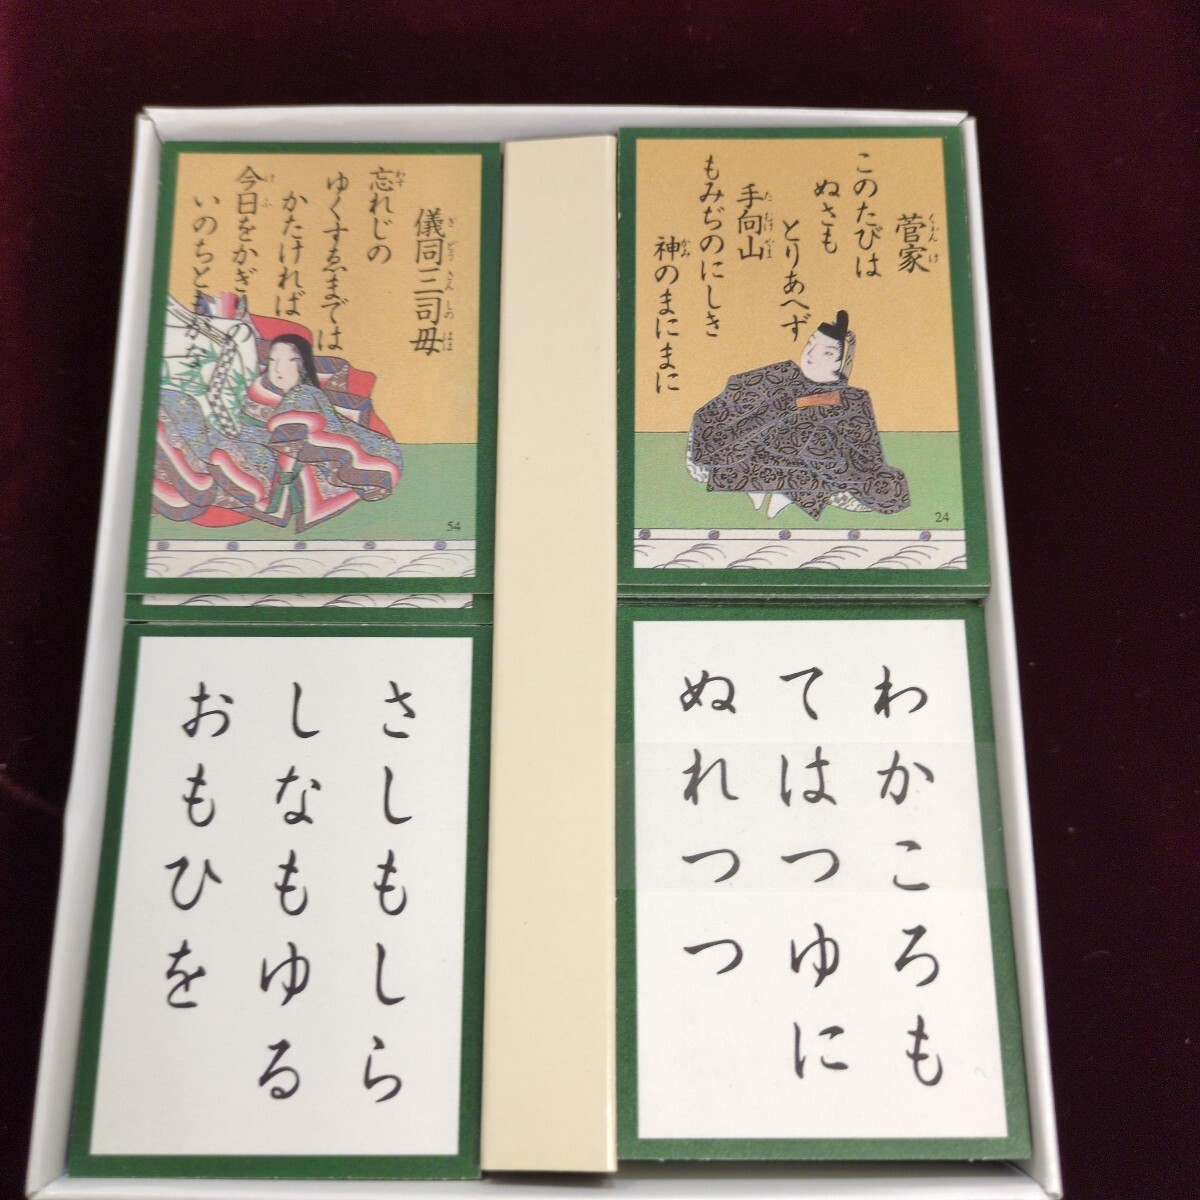 儀同三司母
ぎどうさんしのはは
忘れじの
わす
ゆくすゑまでは
かたければ
今日をかぎりの
けふ
いのちともがな
54
菅家
くわんけ
このたびは
ぬさも
とりあへず
手向山
たむけやま
もみぢのにしき
神のまにまに
かみ
24
さしもしら
しなもゆる
おもひを
わかころも
てはつゆに
ぬれつつ